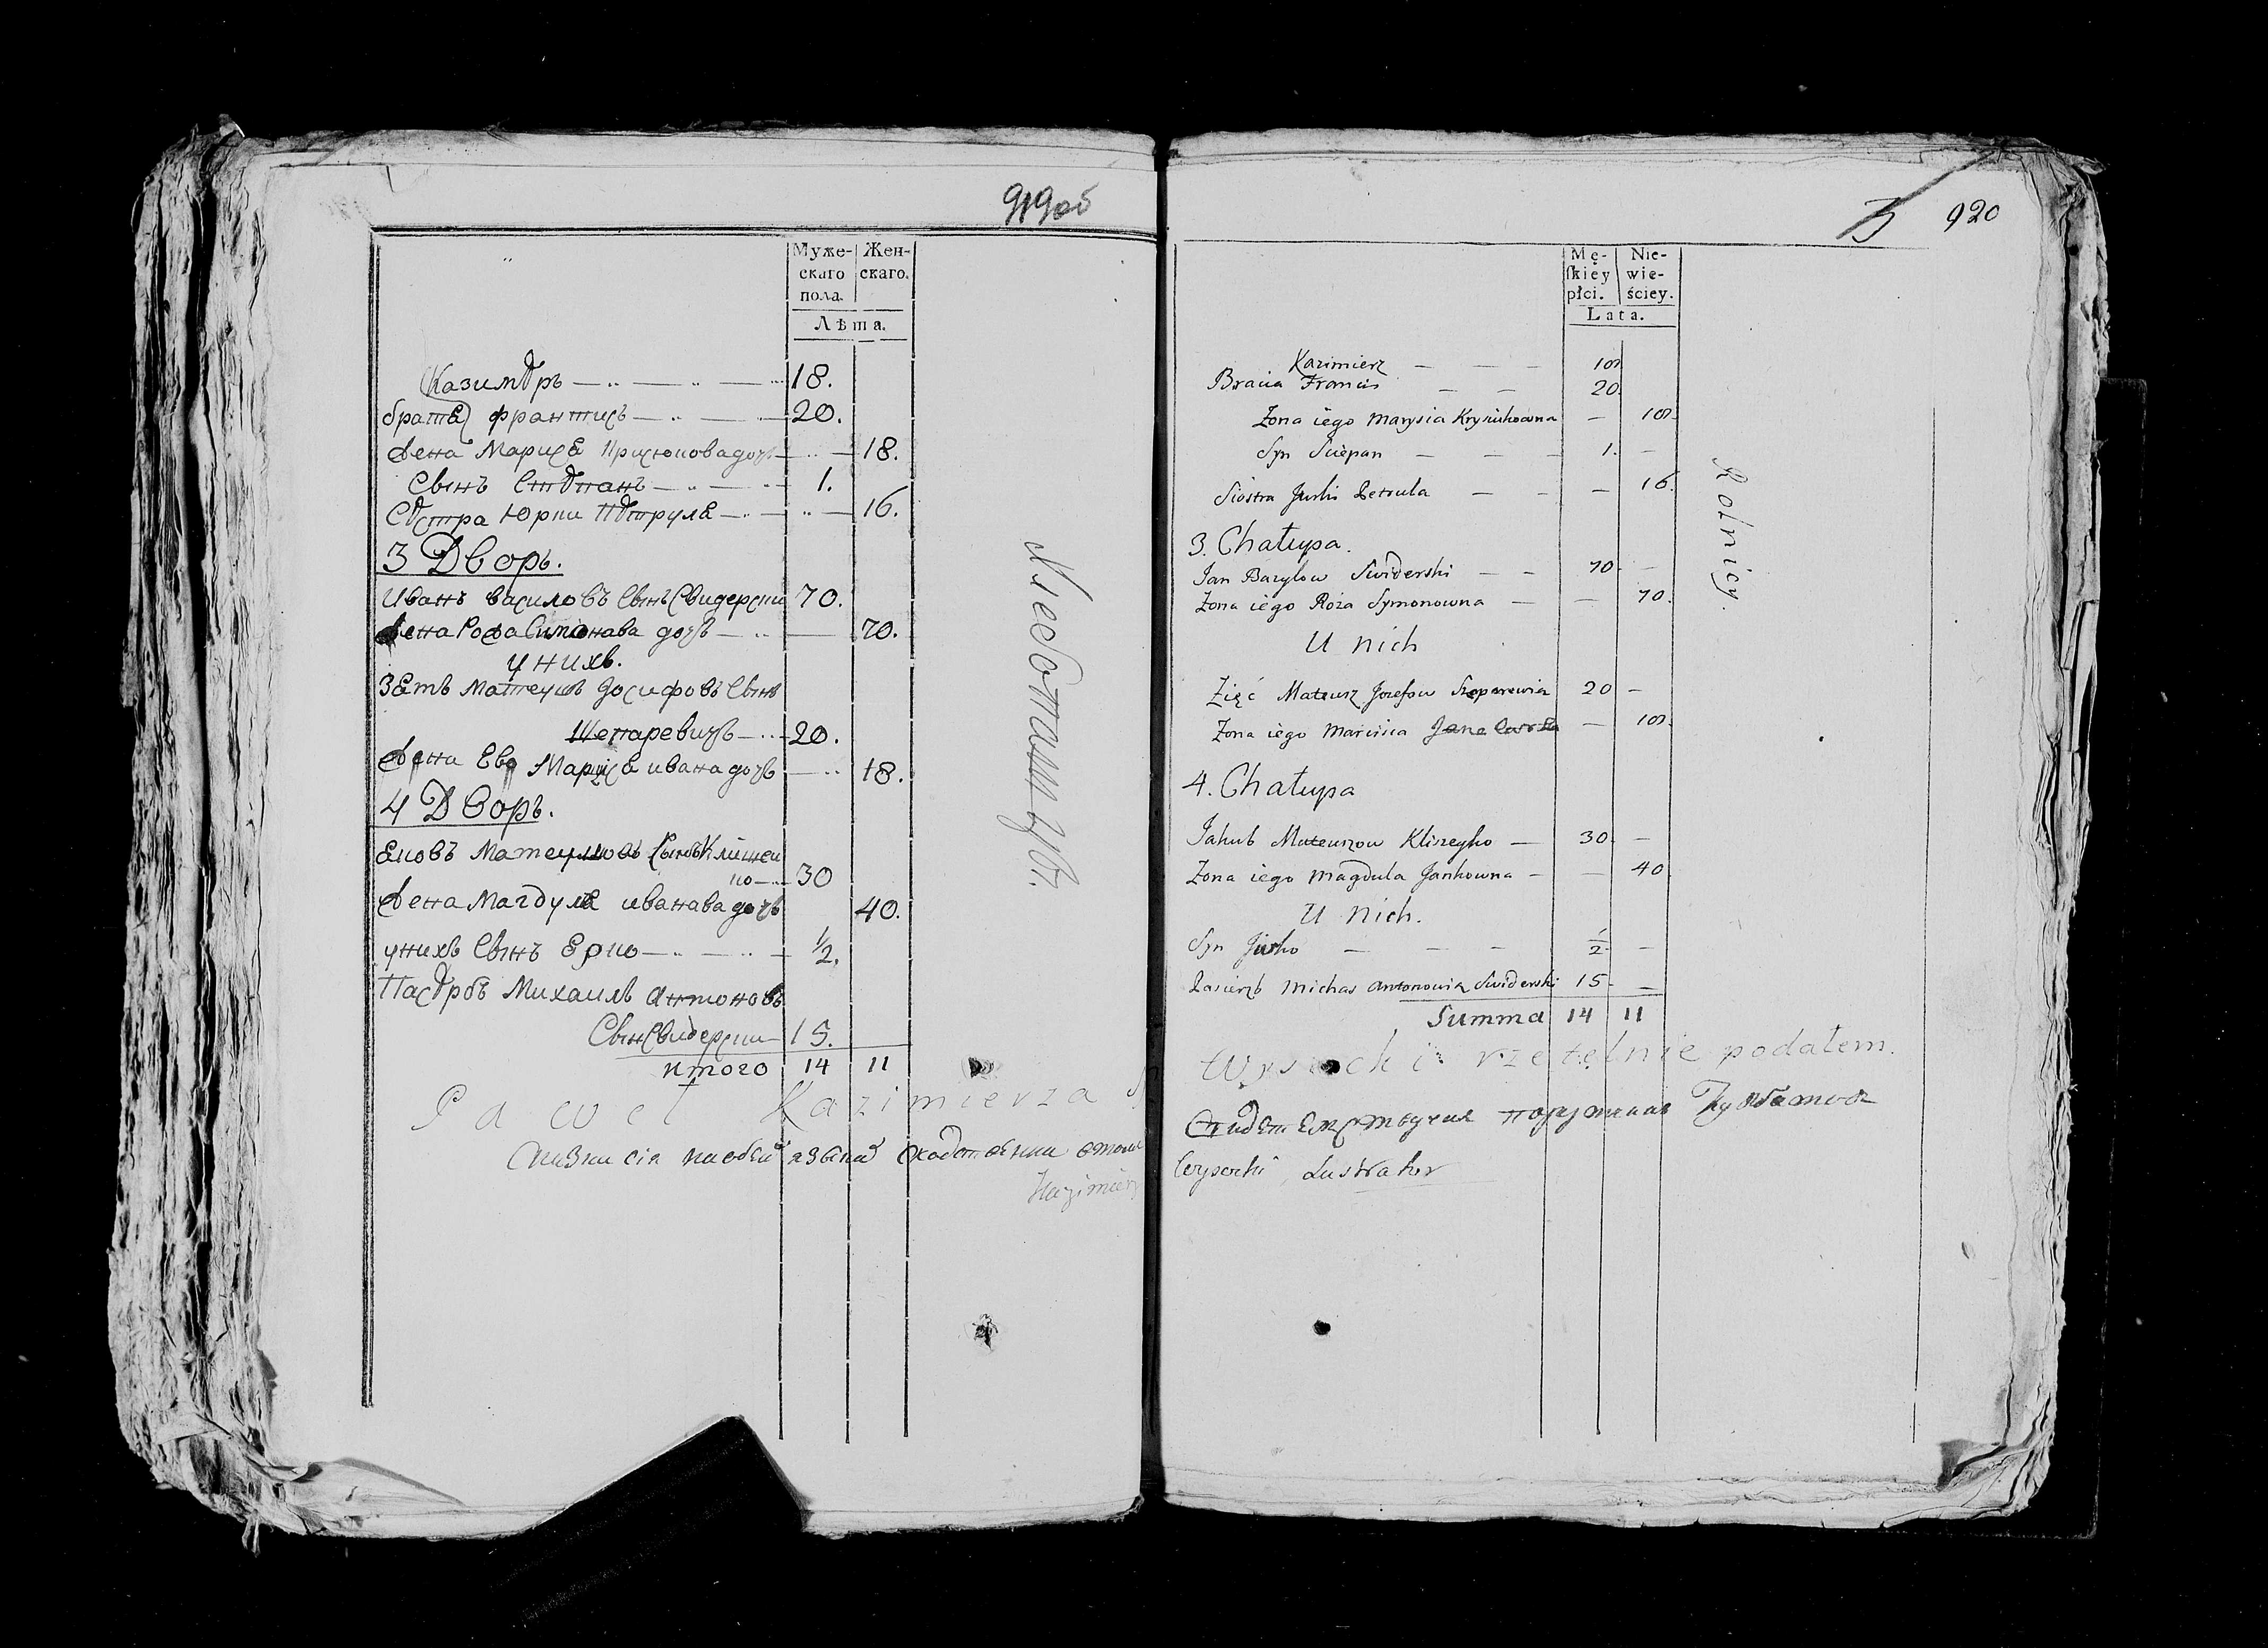 919об
Муже- Жен-
скаго скаго.
пола.
Лѣта.
Казимеръ 18.
братя францись 20.
жена Марися 18.
Сынъ Степанъ 1.
Сестра Юрки Петруля 16.
3 Дворъ.
Иванъ василовъ Сынъ Свидерски 70.
жена Рожа Симонава дочь 70.
у нихъ.
Зять Матеушъ Іосифовъ Сынъ
Шепаревичъ 20.
жена Ево Марися ивана дочь 18.
4 Дворъ.
Яковъ Матеушовъ Сынъ Клишей
ко 30
жена Магдуля иванава дочь 40.
у нихъ Сынъ Юрко ½.
Пасербъ Михаилъ антоновъ
Сынъ Свидерски 15.
итого 14 11
Paweł Kazimierza
Kazimierz
920
Mę- Nie-
ſkiey wie-
płci. ściey.
Lata.
Kazimierz — — — 18
Bracia Francis — — 20.
Zona iego Marysia Krysiukowna — 18.
Syn Sciepan — — — 1. —
Siostra Jurki Petrula — — — 16.
3. Chałupa.
Jan Bazylow Swiderski — — 70. —
Zona iego Roża Symonowna — — 70.
U nich
Zięć Mateusz Jozefow Szeparewicz 20 —
Zona iego Marcisia — 18.
4. Chałupa
Jakub Mateuszow Kliszeyko — 30. —
Zona iego Magdula Jankowna — — 40.
U nich.
Syn Jurko — — — ½. —
Pasierzb Michas Antonowicz Swiderski 15. —
Summa 14 11
Rolnicy.
Wysocki rzetelnie podałem.
Wysocki, Lustrator